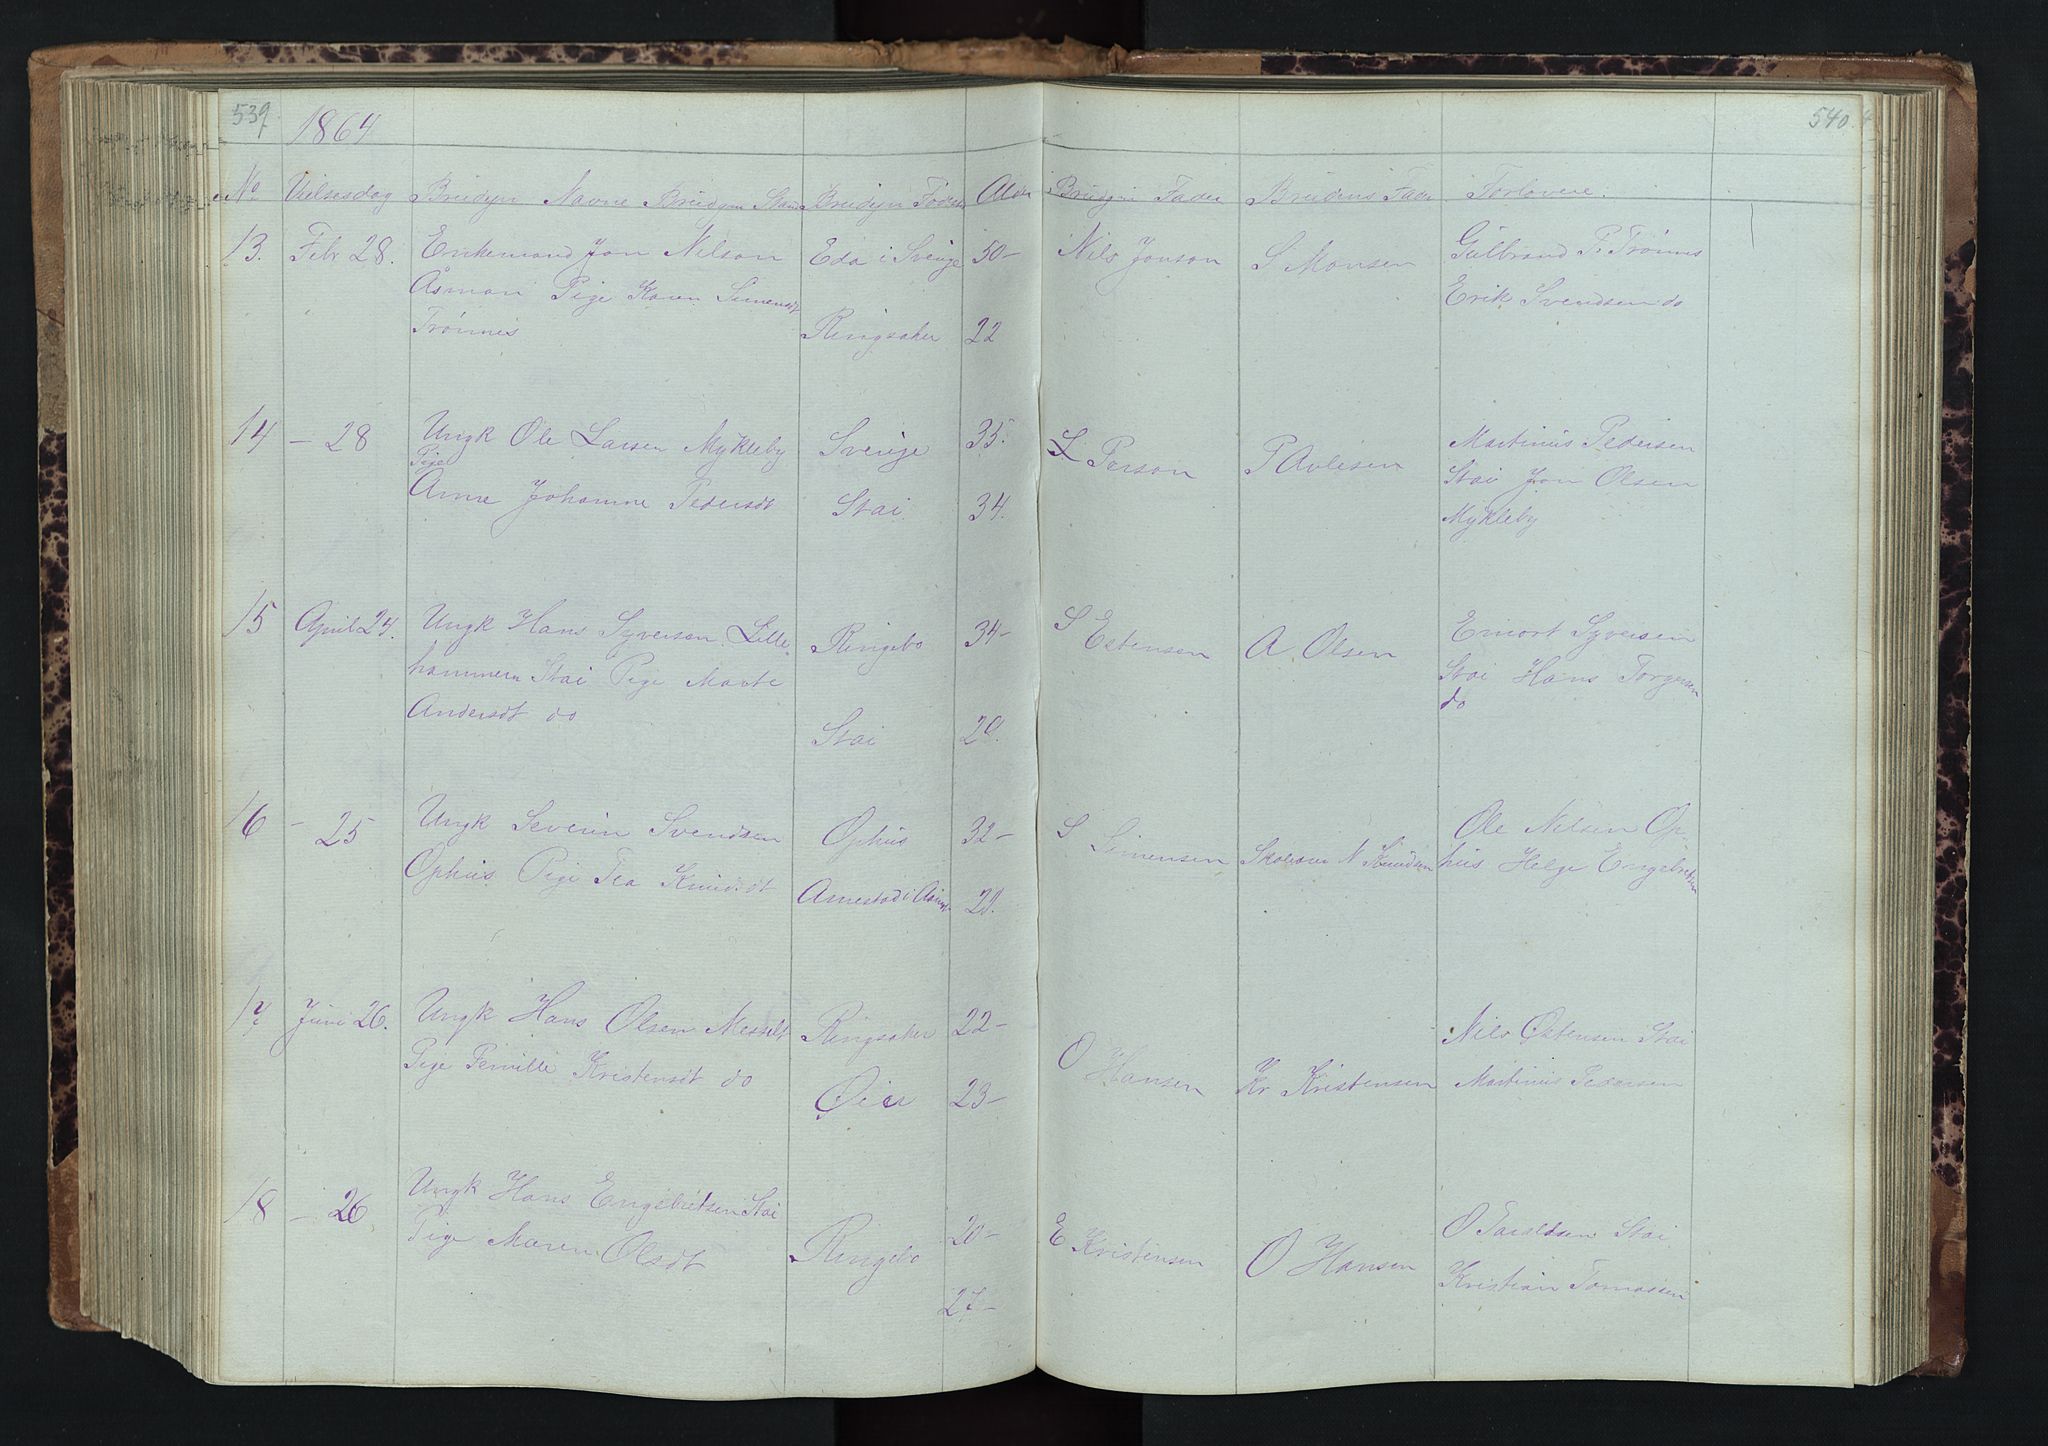 539
1864
540
No Vielsesdag Brudgm Navne Brudgm Stand Brudgm Føde Alder Brudgm Fader Brudens Fader Forlovere.
13. Febr 28. Enkemand Jon Nilson Eda i Sverige 50- Nils Jonson S Monsen Gulbrand P. Trønnes
Åsmon Pige Karen Simensdt Erik Svendsen do
Trønnes Ringsaker 22
14 - 28 Ungk Ole Larsen Mykleby Sverige 35. L Person P Avlesen Martinus Pedersen
Pige
Anne Johanne Pedersdt Stai 34. Stai Jon Olsen
Mykleby
15 April 24. Ungk Hans Syversen Lille- Ringebo 34- S Estensen A Olsen Emort Syversen
hammern Stai Pige Marte Stai Hans Torgersen
Andersdt do Stai 20. do
16 - 25 Ungk Severin Svendsen Ophus 32- S Simensen N Knudsen Ole Nilsen Op-
Ophus Pige Tea Knudsdt 22. hus Helge Engebretsen
17 Juni 26. Ungk Hans Olsen Messelt Ringsaker 22- O Hansen Kr Kristensen Nils Østensen Stai
Pige Pernille Kristensdt do Øier 23- Martinus Pedersen
18 - 26 Ungk Hans Engebretsen Stai 20- E Kristensen O Hansen O Taraldsen Stai
Pige Maren Olsdt Ringebo 27- Kristian Tomassen